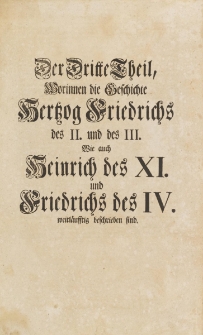 Der Dritte Theil,
Worinnen die Geschichte
Hertzog Friedrichs
des II. und des III.
Wie auch
Heinrich des XI.
und
Friedrichs des IV.
weitläufftig beschrieben sind.